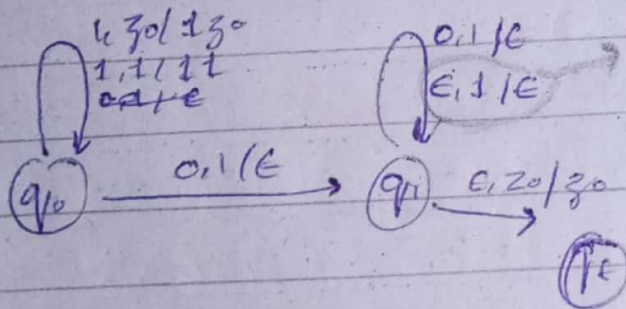 1, z0 / 1 z0
1, 1 / 1 1
0, 1 / ε
0, 1 / ε
ε, 1 / ε
q0
0, 1 / ε
q1
ε, z0 / z0
qf